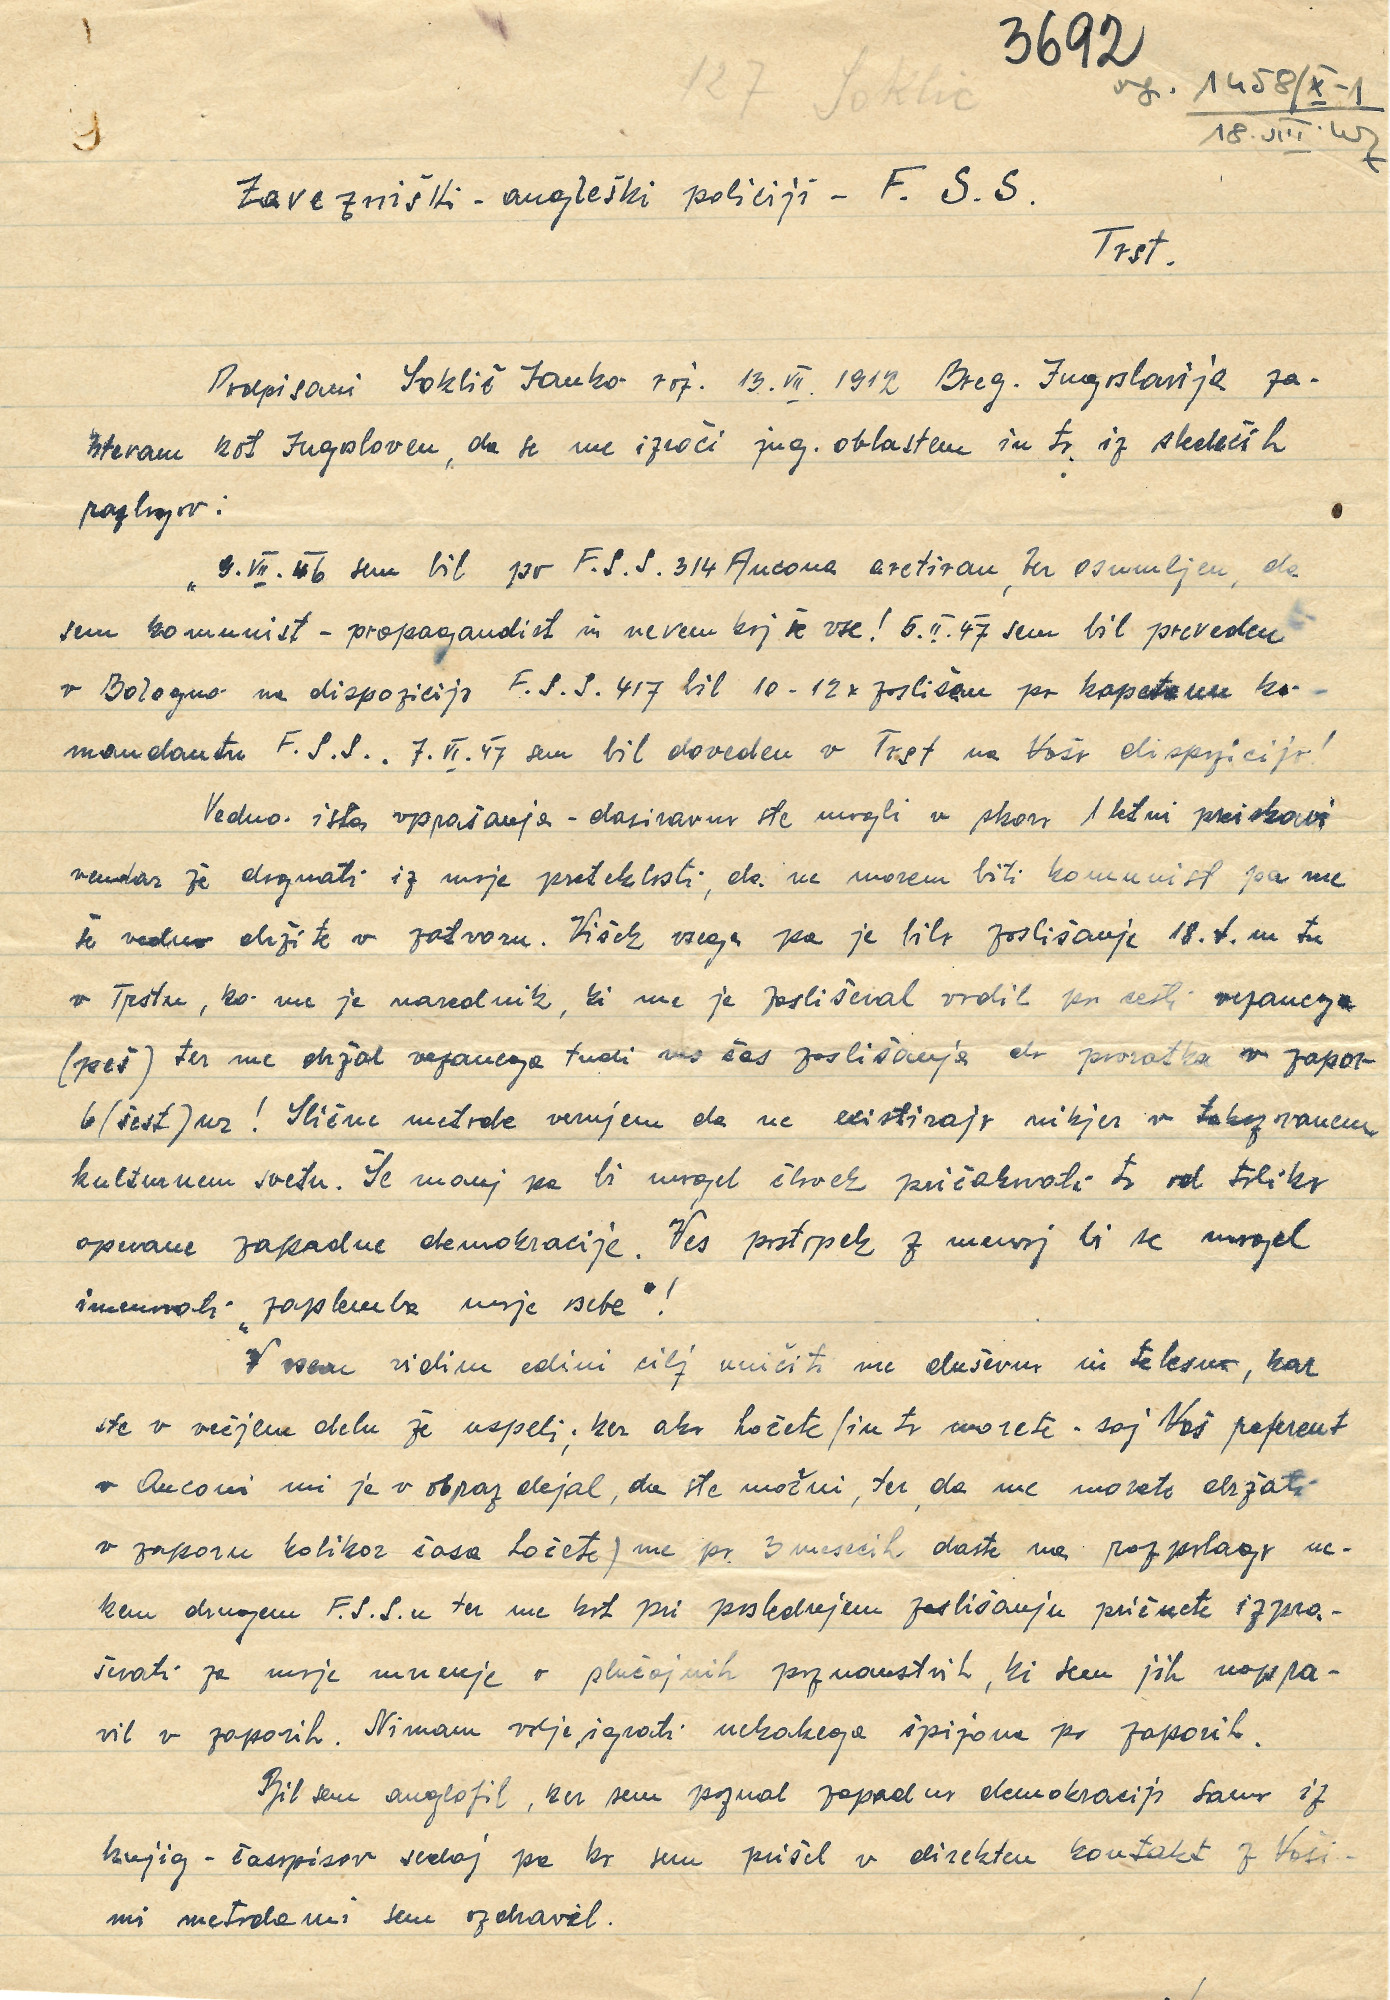 3692
127 Soklič
1458/X-1
18.VIII.47
Zavezniški - angleški policiji - F. S. S.
Trst.
Podpisani Soklič Janko roj. 13. VII. 1912 Breg. Jugoslavija za-
htevam kot Jugosloven, da se me izroči jug. oblastem in to iz sledečih
razlogov:
9.VII.46 sem bil po F.S.S. 314 Ancona aretiran, ter osumljen, da
sem komunist - propagandist in nevem kaj še vse! 6.II.47 sem bil preveden
v Bologno na dispozicijo F.S.S. 417 bil 10-12x zaslišan po kapetanu ko-
mandantu F.S.S.. 7.VI.47 sem bil doveden v Trst na Vašo dispozicijo!
Vedno ista vprašanja - dasiravno ste mogli v skoro 1 letni preiskavi
vendar že dognati iz moje preteklosti, da ne morem biti komunist pa me
še vedno držite v zatvoru. Višek vsega pa je bilo zaslišanje 18.t.m tu
v Trstu, ko me je narednik, ki me je zasliševal vodil po cesti vezanega
(peš) ter me držal vezanega tudi ves čas zaslišanja do povratka v zapor-
6 (šest) ur! Slične metode verujem da ne existirajo nikjer v takozvanem
kulturnem svetu. Še manj pa bi mogel človek pričakovati to od toliko
opevane zapadne demokracije. Ves postopek z menoj bi se mogel
imenovati „zaplemba moje osebe"!
V vsem vidim edini cilj uničiti me duševno in telesno, kar
ste v večjem delu že uspeli; ker ako hočete (in to morete - saj Vaš referent
v Anconi mi je v obraz dejal, da ste močni, ter, da me morete držati
v zaporu kolikor časa hočete) me po 3 mesecih daste na razpolago ne-
kem drugem F.S.S.u ter me kot pri poslednjem zaslišanju pričnete izpra-
ševati za moje mnenje o slučajnih poznanstvih, ki sem jih napra-
vil v zaporih. Nimam volje igrati nekakega špijona po zaporih.
Bil sem anglofil, ker sem poznal zapadno demokracijo samo iz
knjig - časopisov sedaj pa ko sem prišel v direkten kontakt z Vaši-
mi metodami sem ozdravel.